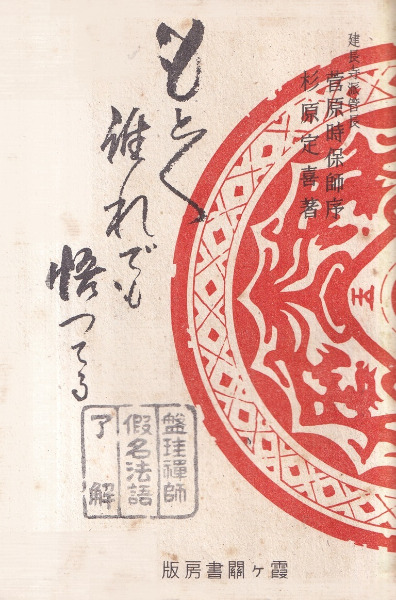 建長寺派管長
菅原時保師序
杉原定喜著
もと〱
誰れでも
悟つてる
盤珪禪師
假名法語
了解
五
版房書關ヶ霞